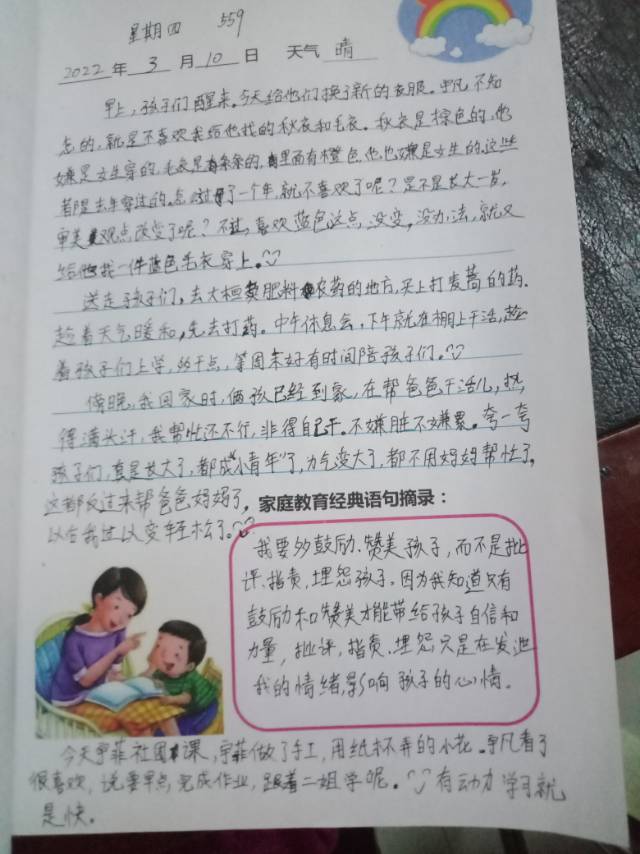 星期四 559
2022年 3 月 10 日 天气 晴
早上,孩子们醒来。今天给他们换了新的衣服。宇凡不知
怎的,就是不喜欢我给他找的秋衣和毛衣。秋衣是棕色的,他
嫌是女生穿的,毛衣是条的,里面有橙色,他也嫌是女生的,这些
都是去年穿过的。怎过了一个年,就不喜欢了呢?是不是长大一岁,
审美观点改变了呢?不过,喜欢蓝色这点,没变,没办法,就又
给他找一件蓝色毛衣穿上。
送走了孩子们,去大桓卖肥料农药的地方,买上打麦蒿的药.
趁着天气暖和,先去打药。中午休息会,下午就在棚上干活,趁
着孩子们上学,多干点,等周末好有时间陪孩子们。
傍晚,我回家时,俩孩已经到家,在帮爸爸干活儿,热
得满头汗,我帮忙还不行,非得自己干。不嫌脏不嫌累。夸一夸
孩子们,真是长大了,都成“小青年”了,力气变大了,都不用妈妈帮忙了,
这都反过来帮爸爸妈妈了,
以后我过以变轻松了。
家庭教育经典语句摘录:
我要多鼓励、赞美孩子,而不是批
评、指责,埋怨孩子。因为我知道只有
鼓励和赞美才能带给孩子自信和
力量,批评,指责、埋怨只是在发泄
我的情绪,影响孩子的心情。
今天宇菲社团课,宇菲做了手工,用纸杯弄的小花。宇凡看了
很喜欢,说要早点完成作业,跟着二姐学呢。有动力学习就
是快。